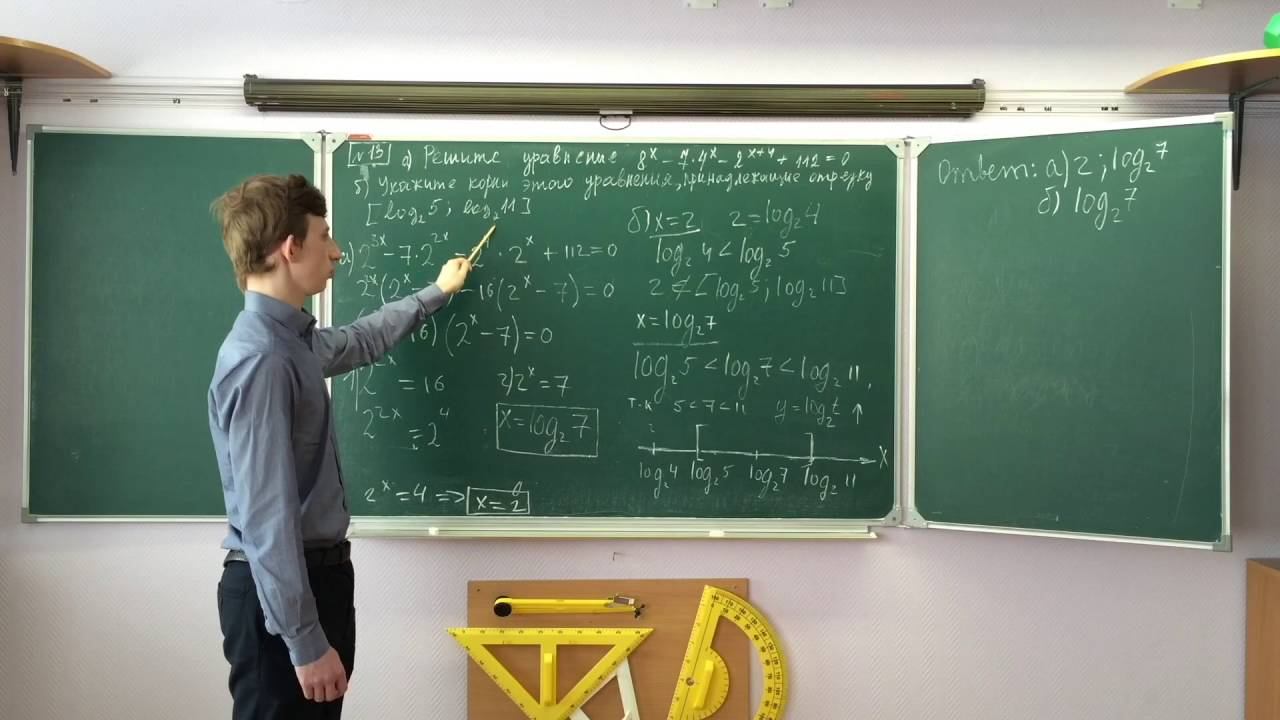 №13 а) Решите уравнение 8^x − 7·4^x − 2^(x+4) + 112 = 0
б) Укажите корни этого уравнения, принадлежащие отрезку
[log₂5; log₂11]
а) 2^(3x) − 7·2^(2x) − · 2^x + 112 = 0
2^(2x)(2^x − 16(2^x − 7) = 0
16)(2^x − 7) = 0
= 16 2) 2^x = 7
2^(2x) = 2^4 x = log₂7
2^x = 4 => x = 2
б) x = 2 2 = log₂4
log₂4 < log₂5
2 ∉ [log₂5; log₂11]
x = log₂7
log₂5 < log₂7 < log₂11,
т.к 5 < 7 < 11 y = log₂t ↑
2
x
log₂4 log₂5 log₂7 log₂11
Ответ: а) 2; log₂7
б) log₂7